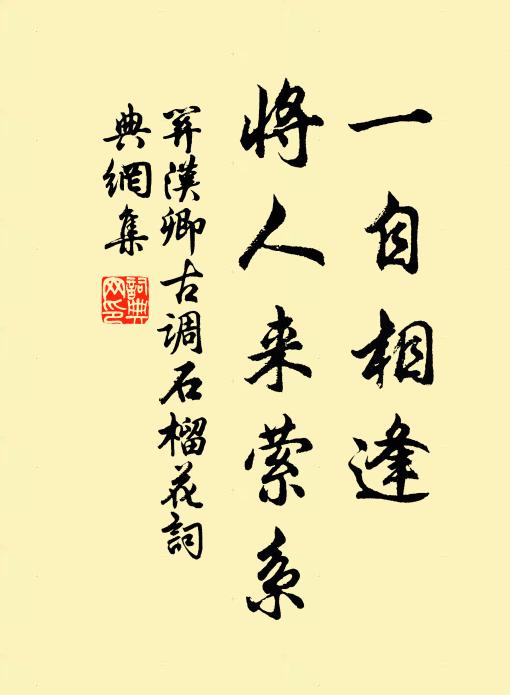 一自相逢
将人来萦系
關漢卿古调石榴花詞
典網集
詞典
网印